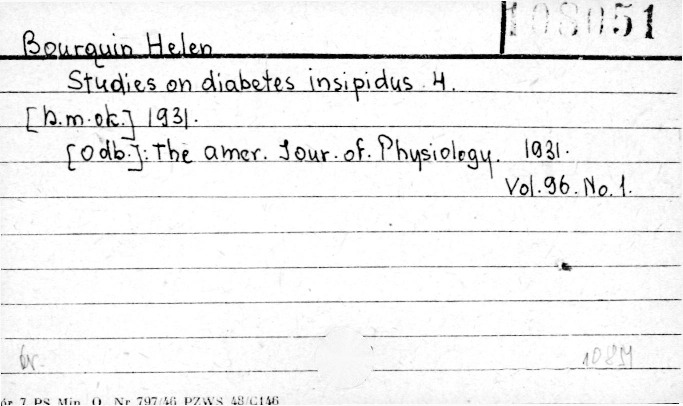 108051
Bourquin Helen
Studies on diabetes insipidus 4.
[b.m.ok.] 1931.
[Odb.]: The amer. Jour. of. Physiology. 1931.
Vol. 96. No. 1.
br.
Nr 797/46 PZWS 48/C146